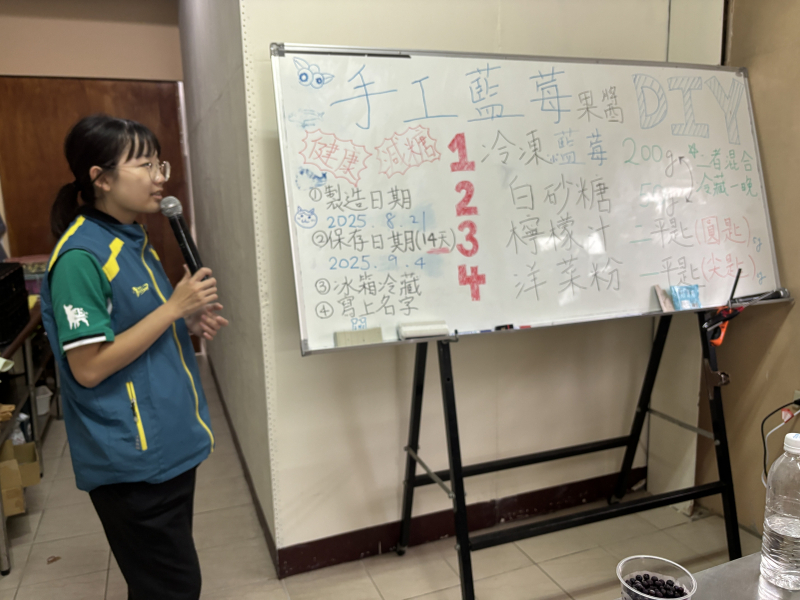 手工藍莓果醬DIY
健康 減糖
①製造日期
2025.8.21
②保存日期(14天)
2025.9.4
③冰箱冷藏
④寫上名字
1 冷凍藍莓 200g
2 白砂糖 50g
3 檸檬汁 二平匙(圓匙)
4 洋菜粉 一平匙(尖匙)
*二者混合
冷藏一晚